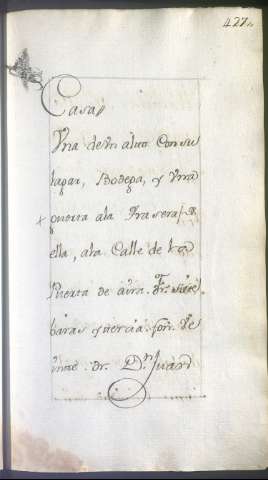 427.
Casa
Vna de Vn alto Con su
lagar, Bodega, y Vna
puerta ala Trasera de
ella, ala Calle de la
Puerta de aira. Fr. siete
baras y tercia fon. Ve
inte. dr. Dn. Juan